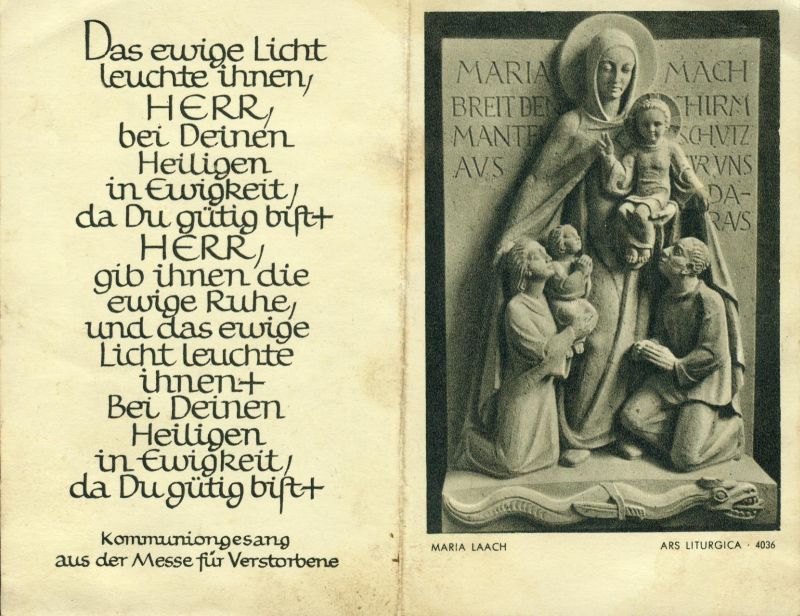 Das ewige Licht
leuchte ihnen,
HERR,
bei Deinen
Heiligen
in Ewigkeit,
da Du gütig bist+
HERR,
gib ihnen die
ewige Ruhe,
und das ewige
Licht leuchte
ihnen+
Bei Deinen
Heiligen
in Ewigkeit,
da Du gütig bist+
Kommuniongesang
aus der Messe für Verstorbene
MARIA
BREIT DEN
MANTEL
AVS
MACH
SCHIRM
SCHVTZ
VNS
DA-
RAVS
MARIA LAACH
ARS LITURGICA · 4036